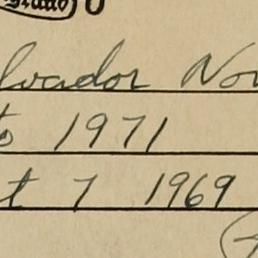 Brand 0
lvador Nov
to 1971
t 7 1969